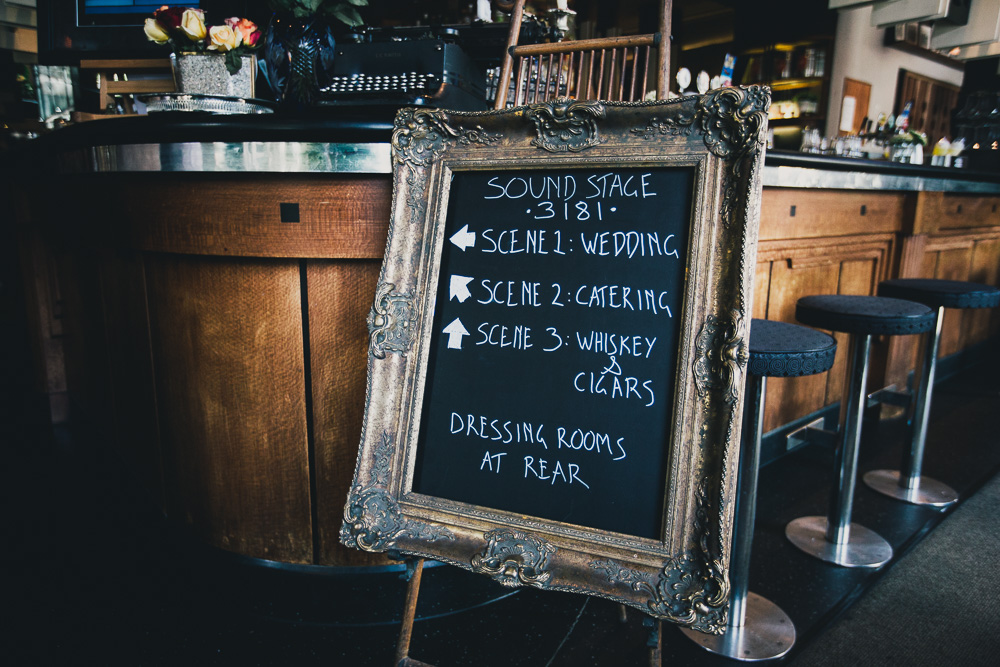 SOUND STAGE
•3181•
SCENE 1: WEDDING
SCENE 2: CATERING
SCENE 3: WHISKEY
&
CIGARS
DRESSING ROOMS
AT REAR